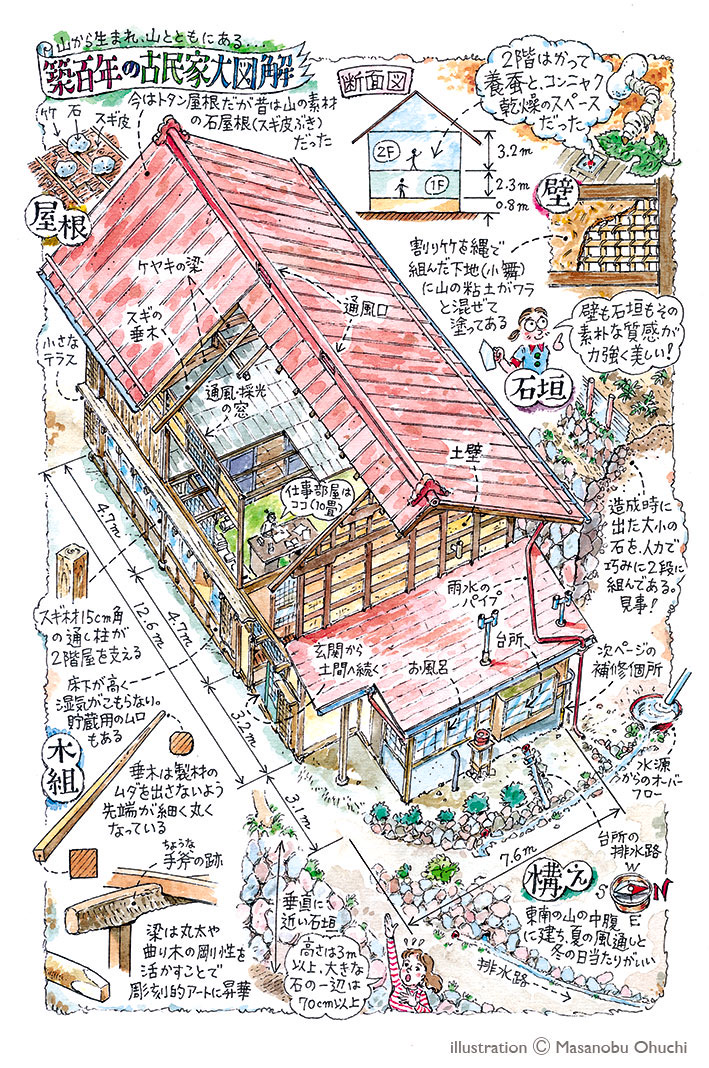 山から生まれ、山とともにある…
築百年の古民家大図解
竹
石
スギ皮
今はトタン屋根だが昔は山の素材
の石屋根(スギ皮ぶき)
だった
屋根
断面図
2F
1F
3.2m
2.3m
0.8m
2階はかつて
養蚕と、コンニャク
乾燥のスペース
だった
壁
割り竹を縄で
組んだ下地(小舞)
に山の粘土がワラ
と混ぜて
塗ってある
壁も石垣もその
素朴な質感が
力強く美しい!
石垣
造成時に
出た大小の
石を、人力で
巧みに2段に
組んである。
見事!
ケヤキの梁
スギの
垂木
通風口
小さな
テラス
通風・採光
の窓
土壁
仕事部屋は
ココ(10畳)
雨水の
パイプ
台所
お風呂
玄関から
土間へ続く
次ページの
補修個所
水源
からのオーバー
フロー
台所の
排水路
4.7m
12.6m
4.7m
3.2m
3.1m
7.6m
スギ材15cm角
の通し柱が
2階屋を支える
床下が高く
湿気がこもらない。
貯蔵用のムロ
もある
木組
垂木は製材の
ムダを出さないよう
先端が細く丸く
なっている
ちょうな
手斧の跡
梁は丸太や
曲り木の剛性を
活かすことで
彫刻的アートに昇華
垂直に
近い石垣
高さは3m
以上、大きな
石の一辺は
70cm以上!
構え
W
S
N
E
東南の山の中腹
に建ち、夏の風通しと
冬の日当たりがいい
排水路
illustration © Masanobu Ohuchi